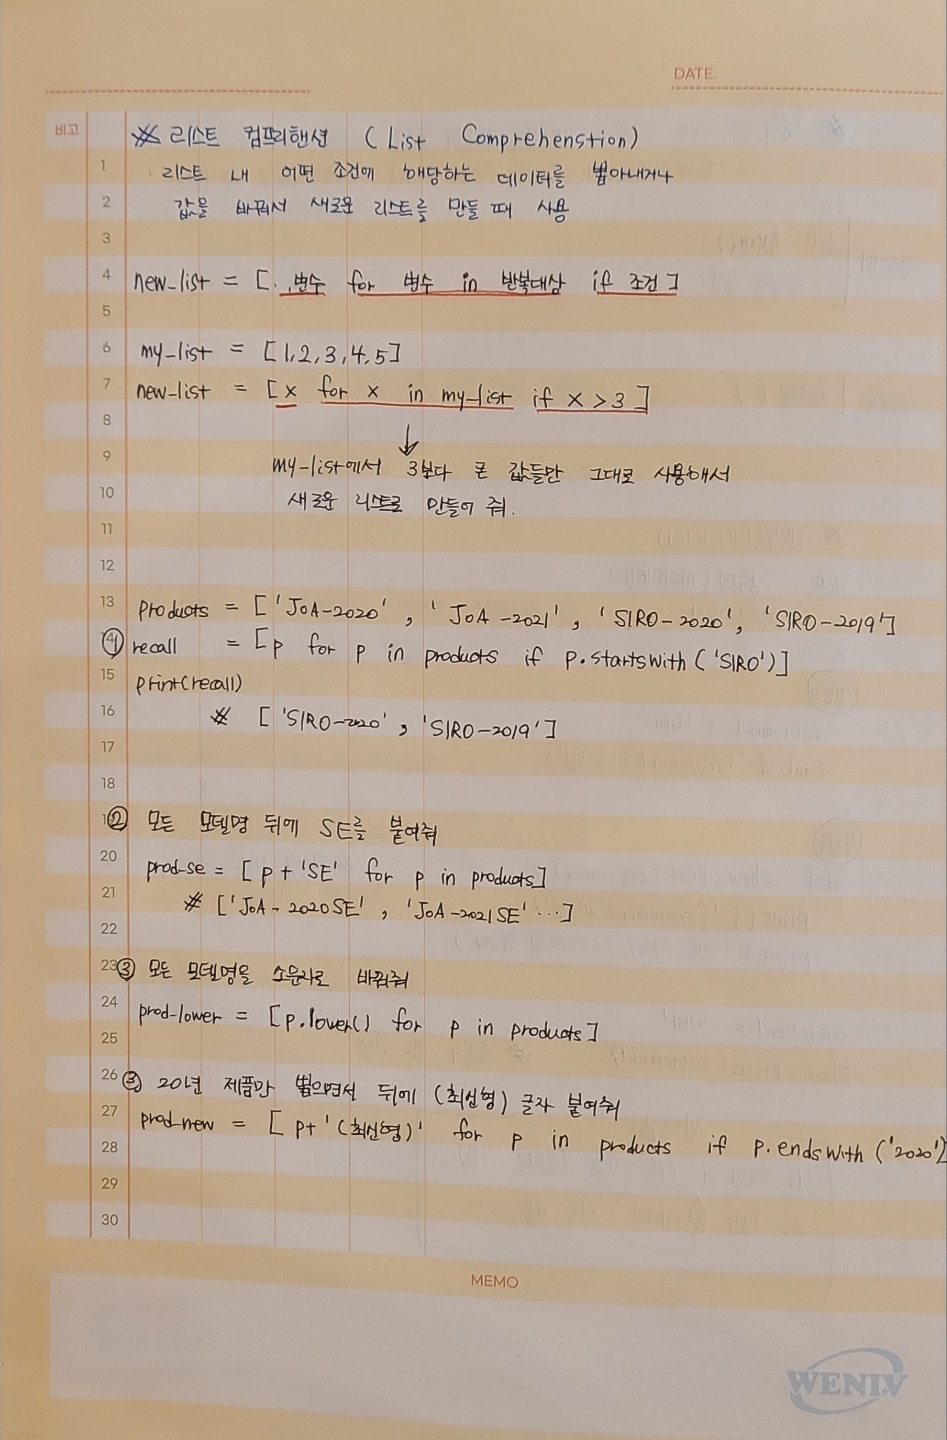 DATE.
비고
※ 리스트 컴프리핸션 (List Comprehenstion)
1 · 리스트 내 어떤 조건에 해당하는 데이터를 뽑아내거나
2 값을 바꿔서 새로운 리스트를 만들 때 사용
3
4 new_list = [ 변수 for 변수 in 반복대상 if 조건 ]
5
6 my_list = [1,2,3,4,5]
7 new_list = [x for x in my_list if x >3 ]
8 ↓
9 my_list에서 3보다 큰 값들만 그대로 사용해서
10 새로운 리스트로 만들어 줘.
11
12
13 products = ['JOA-2020', 'JOA-2021', 'SIRO-2020', 'SIRO-2019']
① recall = [p for p in products if p.startswith('SIRO')]
15 print(recall)
16 # ['SIRO-2020', 'SIRO-2019']
17
18
② 모든 모델명 뒤에 SE를 붙여줘
20 prod_se = [p+'SE' for p in products]
21 # ['JOA-2020SE', 'JOA-2021SE' ...]
22
23 ③ 모든 모델명을 소문자로 바꿔줘
24 prod_lower = [p.lower() for p in products]
25
26 ③ 20년 제품만 뽑으면서 뒤에 (최신형) 글자 붙여줘
27 prod_new = [ p+'(최신형)' for p in products if p.endswith('2020')]
28
29
30
MEMO
WENIV